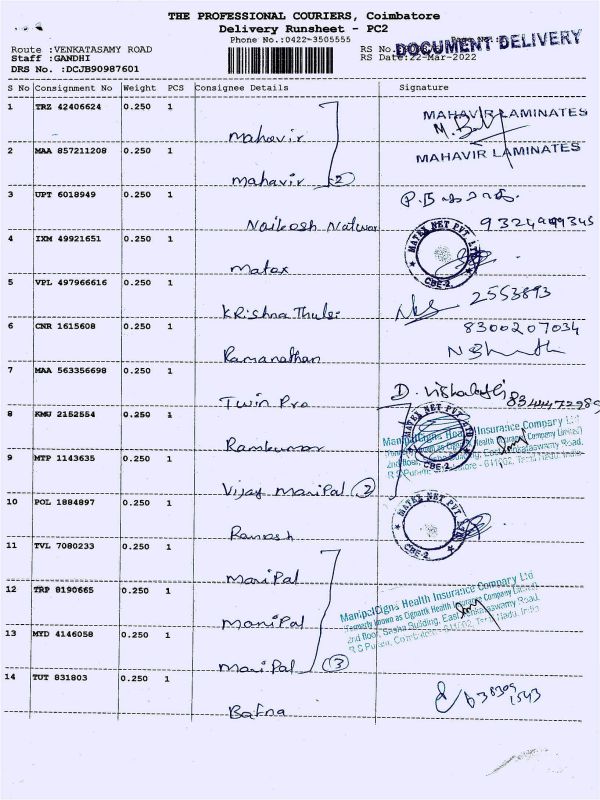 THE PROFESSIONAL COURIERS, Coimbatore
Delivery Runsheet - PC2
Phone No.:0422-3505555
DOCUMENT DELIVERY
Route :VENKATASAMY ROAD
RS No
Staff :GANDHI
RS Date:22-Mar-2022
DRS No. :DCJB90987601
S No Consignment No Weight PCS Consignee Details Signature
1 TRZ 42406624 0.250 1 Mahavir MAHAVIR LAMINATES
2 MAA 857211208 0.250 1 Mahavir (2) MAHAVIR LAMINATES
3 UPT 6018949 0.250 1
4 IXM 49921651 0.250 1 Matex MATEX NET PVT. LTD CBE-2.
5 VPL 497966616 0.250 1 Krishna Thulsi 2553893
6 CNR 1615608 0.250 1 Ramanathan 8300207034
7 MAA 563356698 0.250 1 Twin Pro D.
8 KMU 2152554 0.250 1 Ramkumar MATEX NET PVT. LTD CBE-2
ManipalCigna Health Insurance Company Ltd
9 MTP 1143635 0.250 1 Vijay Manipal (2)
10 POL 1884897 0.250 1 Ramash MATEX NET PVT. LTD CBE-2
11 TVL 7080233 0.250 1 Manipal
12 TRP 8190665 0.250 1 Manipal
ManipalCigna Health Insurance Company Ltd
(Formerly known as Cignattk Health Insurance Company Limited)
2nd floor, Sesha Building, East Venkataswamy Road,
13 MYD 4146058 0.250 1 Manipal (3)
14 TUT 831803 0.250 1 Bafna